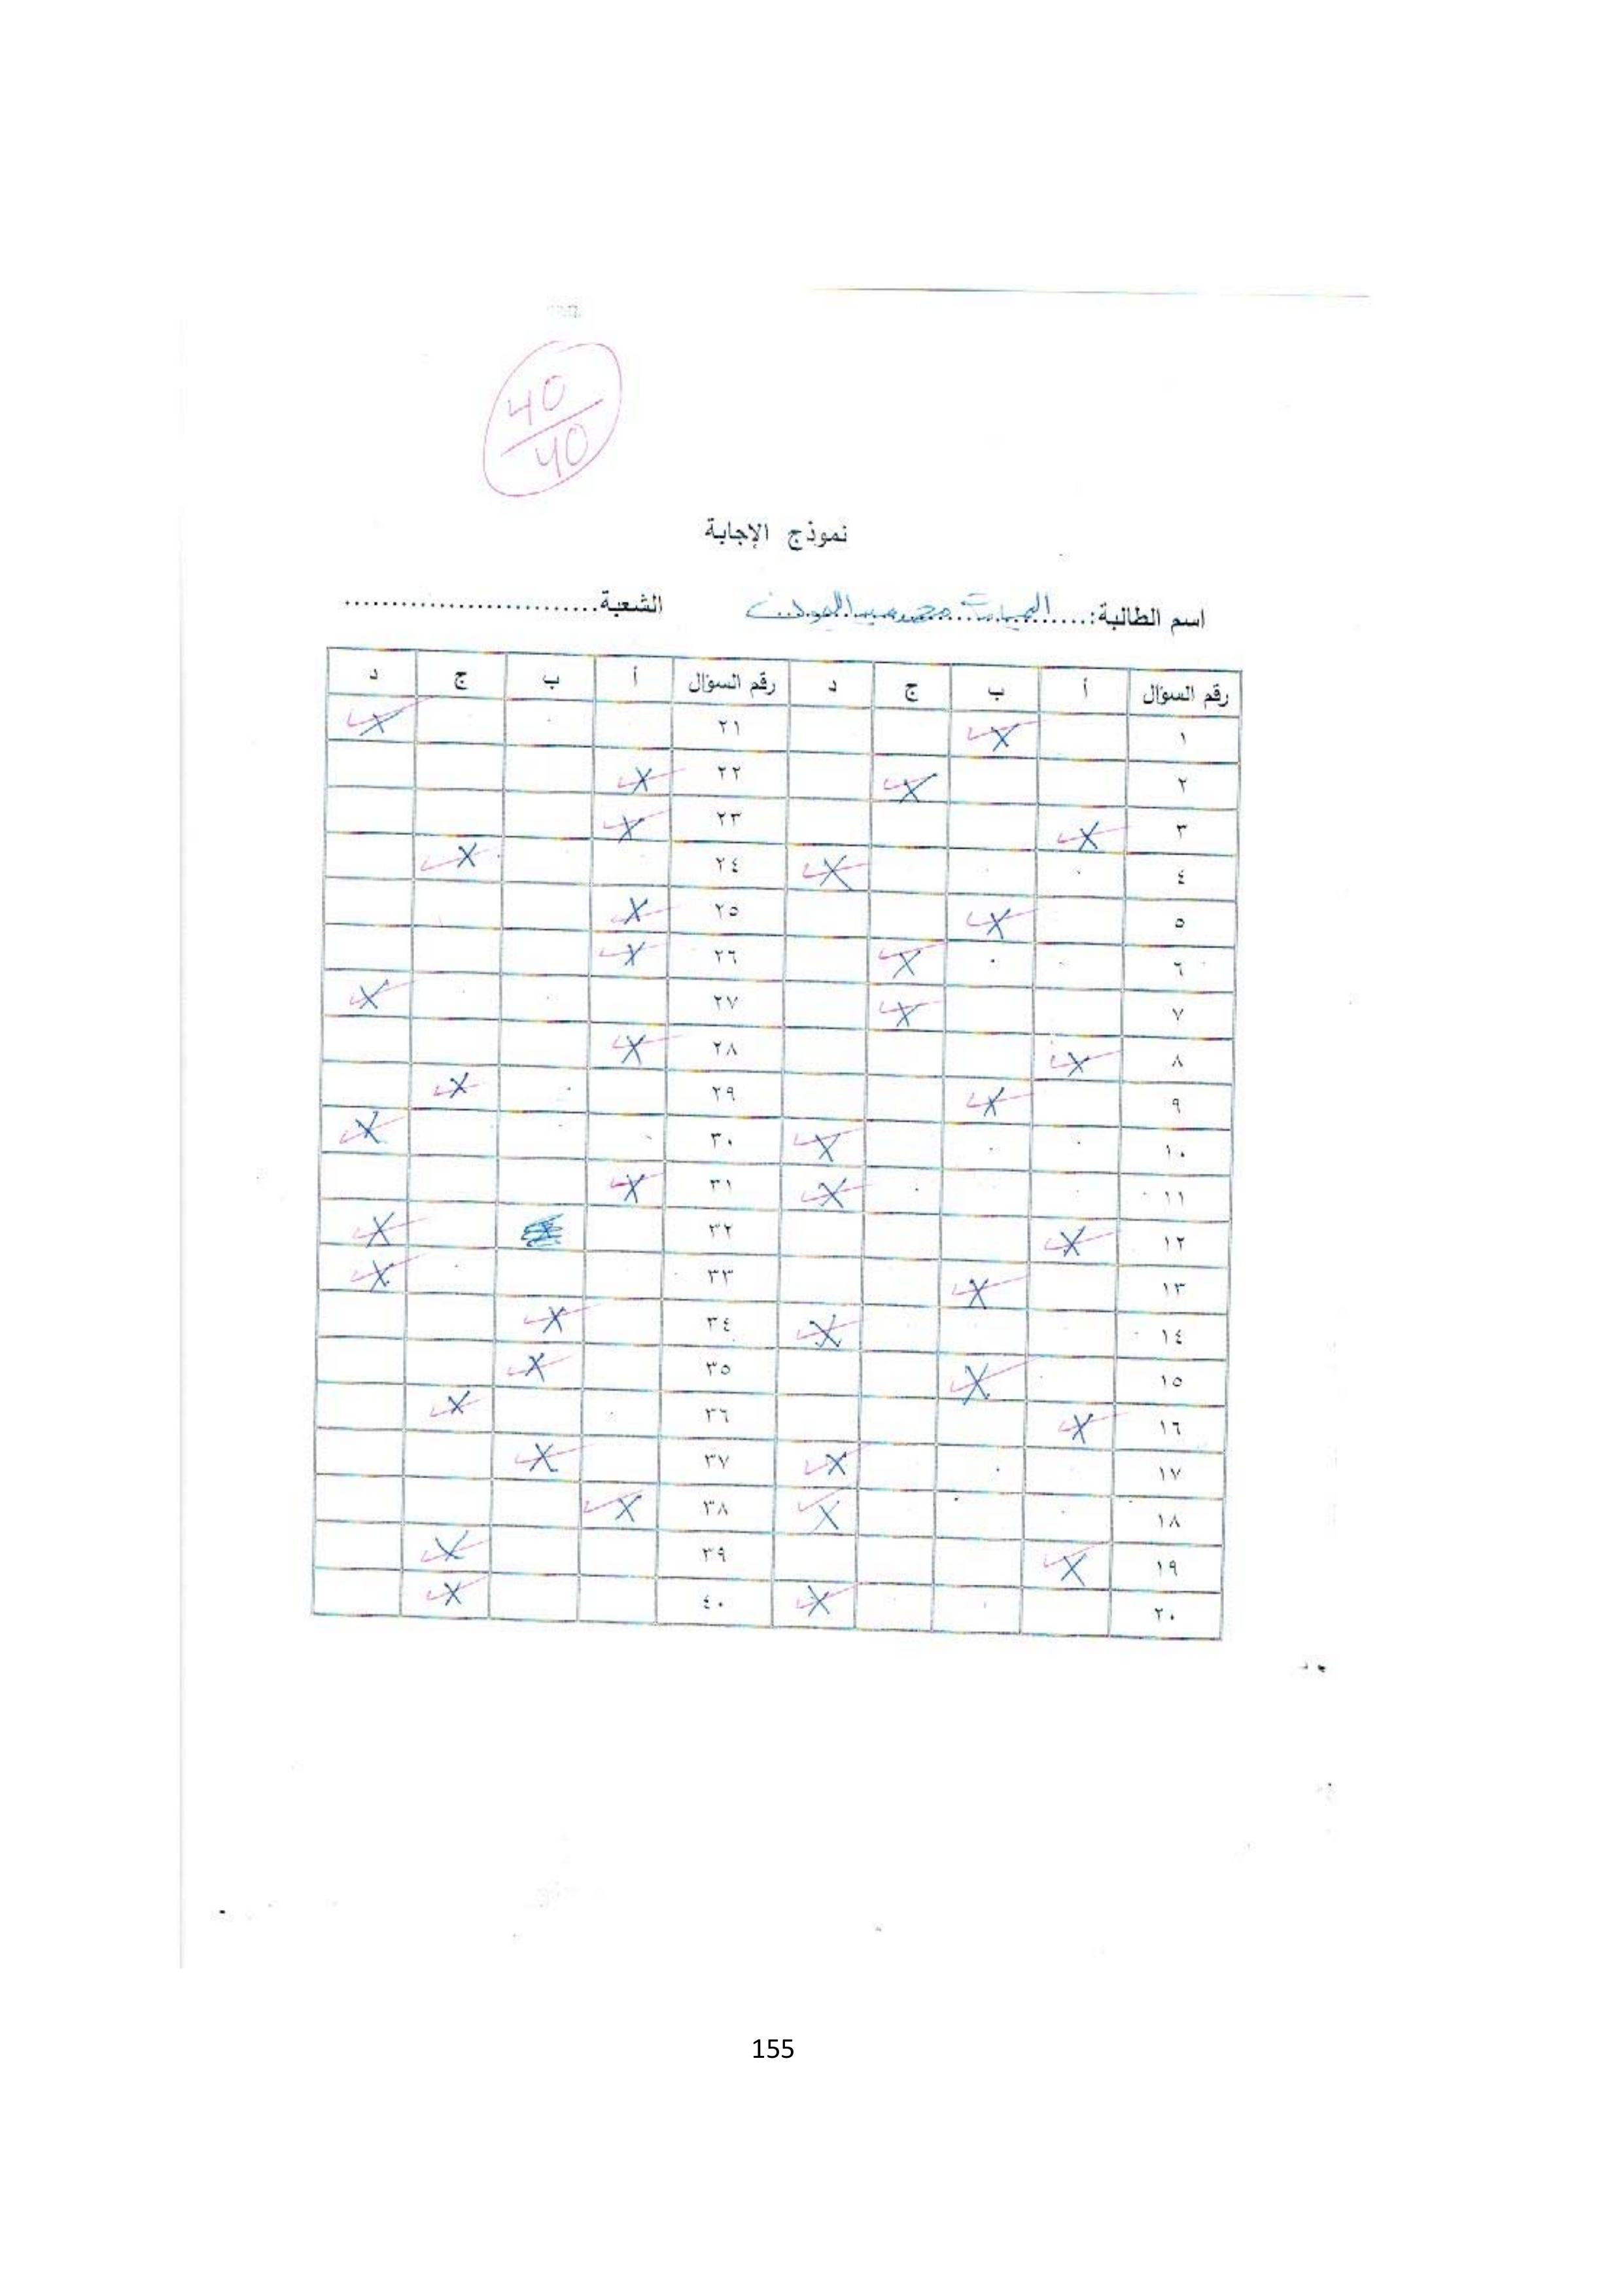 40
40
نموذج الإجابة
اسم الطالبة:............................ الشعبة............................
رقم السؤال أ ب ج د رقم السؤال أ ب ج د
١ X ٢١ X
٢ X ٢٢ X
٣ X ٢٣ X
٤ X ٢٤ X
٥ X ٢٥ X
٦ X ٢٦ X
٧ X ٢٧ X
٨ X ٢٨ X
٩ X ٢٩ X
١٠ X ٣٠ X
١١ X ٣١ X
١٢ X ٣٢ X
١٣ X ٣٣ X
١٤ X ٣٤ X
١٥ X ٣٥ X
١٦ X ٣٦ X
١٧ X ٣٧ X
١٨ X ٣٨ X
١٩ X ٣٩ X
٢٠ X ٤٠ X
155